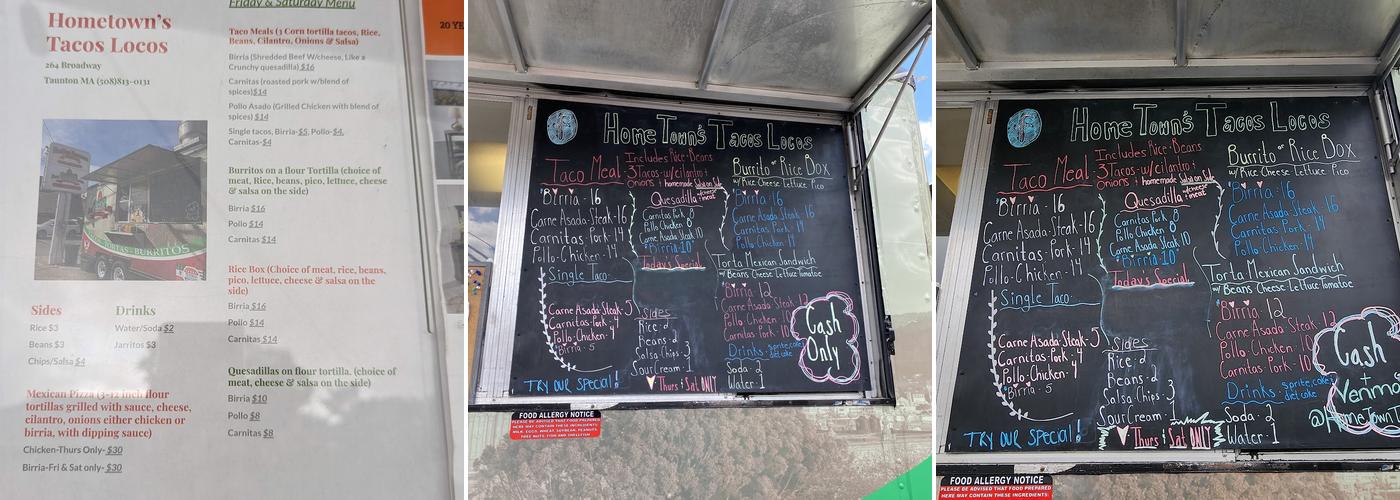 Hometown's
Tacos Locos
264 Broadway
Taunton MA (508)813-0131
Sides
Rice $3
Beans $3
Chips/Salsa $4
Drinks
Water/Soda $2
Jarritos $3
Mexican Pizza (3-12 inch flour
tortillas grilled with sauce, cheese,
cilantro, onions either chicken or
birria, with dipping sauce)
Chicken-Thurs Only- $30
Birria-Fri & Sat only- $30
Friday & Saturday Menu
Taco Meals (3 Corn tortilla tacos, Rice,
Beans, Cilantro, Onions & Salsa)
Birria (Shredded Beef W/cheese, Like a
Crunchy quesadilla) $16
Carnitas (roasted pork w/blend of
spices)$14
Pollo Asado (Grilled Chicken with blend of
spices) $14
Single tacos, Birria-$5, Pollo-$4,
Carnitas-$4
Burritos on a flour Tortilla (choice of
meat, Rice, beans, pico, lettuce, cheese
& salsa on the side)
Birria $16
Pollo $14
Carnitas $14
Rice Box (Choice of meat, rice, beans,
pico, lettuce, cheese & salsa on the
side)
Birria $16
Pollo $14
Carnitas $14
Quesadillas on flour tortilla. (choice of
meat, cheese & salsa on the side)
Birria $10
Pollo $8
Carnitas $8
BURRITOS
20 YE
HomeTown's Tacos Locos
Taco Meal
Includes Rice·Beans
3 Tacos·w/cilantro +
Onions + homemade Salsa on Side
♥Birria·16
Carne Asada·Steak·16
Carnitas·Pork·14
Pollo·Chicken·14
Single Taco·
Carne Asada·Steak·5
Carnitas·Pork·4
Pollo·Chicken·4
♥Birria·5
TRY OUR SPECIAL!
Quesadilla w/cheese + meat
Carnitas Pork 8
Pollo Chicken 8
Carne Asada Steak 10
♥Birria·10
Today's Special
Sides
Rice·2
Beans·2
Salsa·Chips·3
SourCream·1
♥Thurs + Sat ONLY
Burrito or Rice Box
w/ Rice Cheese Lettuce Pico
♥Birria·16
Carne Asada Steak·16
Carnitas Pork·14
Pollo·Chicken·14
Torta Mexican Sandwich
w/ Beans Cheese Lettuce Tomatoe
♥Birria 12
Carne Asada·Steak·12
Pollo·Chicken·10
Carnitas·Pork·10
Drinks· sprite, coke,
diet coke
Soda·2
Water·1
Cash
Only
FOOD ALLERGY NOTICE
PLEASE BE ADVISED THAT FOOD PREPARED
HERE MAY CONTAIN THESE INGREDIENTS:
MILK, EGGS, WHEAT, SOYBEAN, PEANUTS,
TREE NUTS, FISH AND SHELLFISH
HomeTown's Tacos Locos
Taco Meal
Includes Rice·Beans
3 Tacos·w/cilantro +
Onions + homemade Salsa on Side
♥Birria·16
Carne Asada·Steak·16
Carnitas·Pork·14
Pollo·Chicken·14
Single Taco·
Carne Asada·Steak·5
Carnitas·Pork·4
Pollo·Chicken·4
♥Birria·5
TRY OUR SPECIAL!
Quesadilla w/cheese + meat
Carnitas Pork 8
Pollo Chicken 8
Carne Asada Steak 10
♥Birria·10
Today's Special
Sides
Rice·2
Beans·2
Salsa·Chips·3
SourCream·1
♥Thurs + Sat ONLY
Burrito or Rice Box
w/ Rice Cheese Lettuce Pico
♥Birria·16
Carne Asada Steak·16
Carnitas Pork·14
Pollo·Chicken·14
Torta Mexican Sandwich
w/ Beans Cheese Lettuce Tomatoe
♥Birria 12
Carne Asada·Steak·12
Pollo·Chicken·10
Carnitas·Pork·10
Drinks· sprite, coke,
diet coke
Soda·2
Water·1
Cash
+
Venmo
@HomeTown
FOOD ALLERGY NOTICE
PLEASE BE ADVISED THAT FOOD PREPARED
HERE MAY CONTAIN THESE INGREDIENTS: